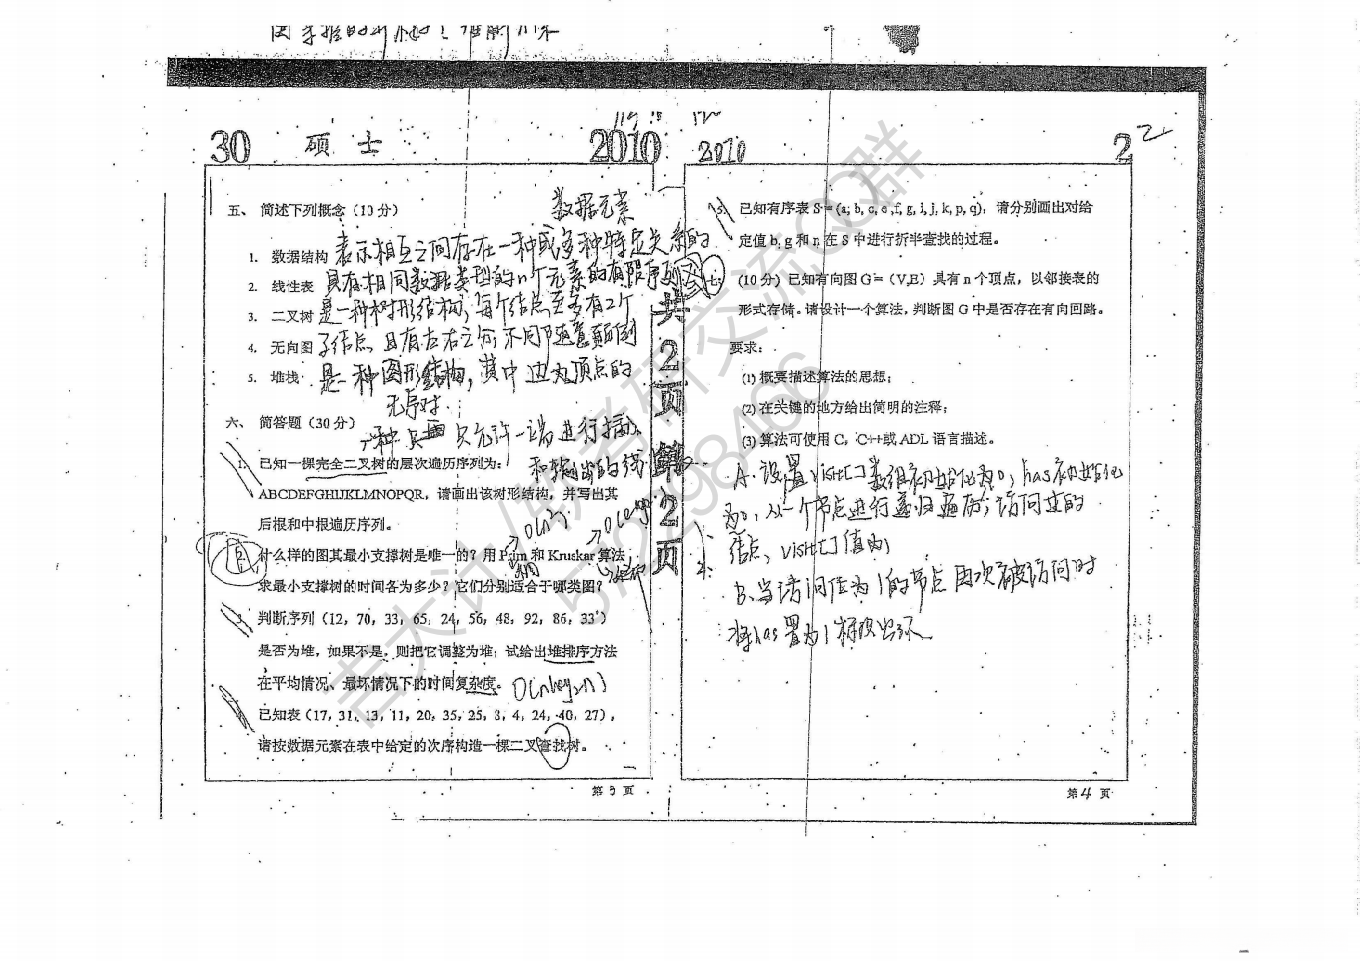 30 硕士 2010
五、 简述下列概念（10 分）
数据元素
1. 数据结构 表示相互之间存在一种或多种特定关系的
2. 线性表 具有相同数据类型的n个元素的有限序列
3. 二叉树 是一种树形结构，每个结点至多有2个
4. 无向图 子结点 且有左右之分 不可随意颠倒
5. 堆栈 是一种图形结构，其中边为顶点的
无序对
六、 简答题（30 分）
一种只 只允许一端进行插入
1. 已知一棵完全二叉树的层次遍历序列为： 和 的线
ABCDEFGHIJKLMNOPQR，请画出该树形结构，并写出其
后根和中根遍历序列。
2. 什么样的图其最小支撑树是唯一的？用 Prim 和 Kruskar 算法
求最小支撑树的时间各为多少？它们分别适合于哪类图？
3. 判断序列（12, 70, 33, 65, 24, 56, 48, 92, 86, 33）
是否为堆，如果不是，则把它调整为堆；试给出堆排序方法
在平均情况、最坏情况下的时间复杂度。
已知表（17, 31, 13, 11, 20, 35, 25, 8, 4, 24, 40, 27），
请按数据元素在表中给定的次序构造一棵二叉查找树。
第 3 页
共2页 第2页
2010 2 2
5. 已知有序表 S=(a, b, c, e, f, g, i, j, k, p, q)，请分别画出对给
定值 b, g 和 n 在 S 中进行折半查找的过程。
七、 (10 分) 已知有向图 G=（V,E）具有 n 个顶点，以邻接表的
形式存储。请设计一个算法，判断图 G 中是否存在有向回路。
要求：
(1) 概要描述算法的思想；
(2) 在关键的地方给出简明的注释；
(3) 算法可使用 C，C++或 ADL 语言描述。
A. 设置visit[]数组初始化为0，has初始化
为0，从一个节点进行递归遍历，访问过的
结点，visit[]值为1
B. 当访问值为1的节点 再次被访问时
将has置为1 标识出环
第 4 页
吉大计/软考研交流QQ群
572298466